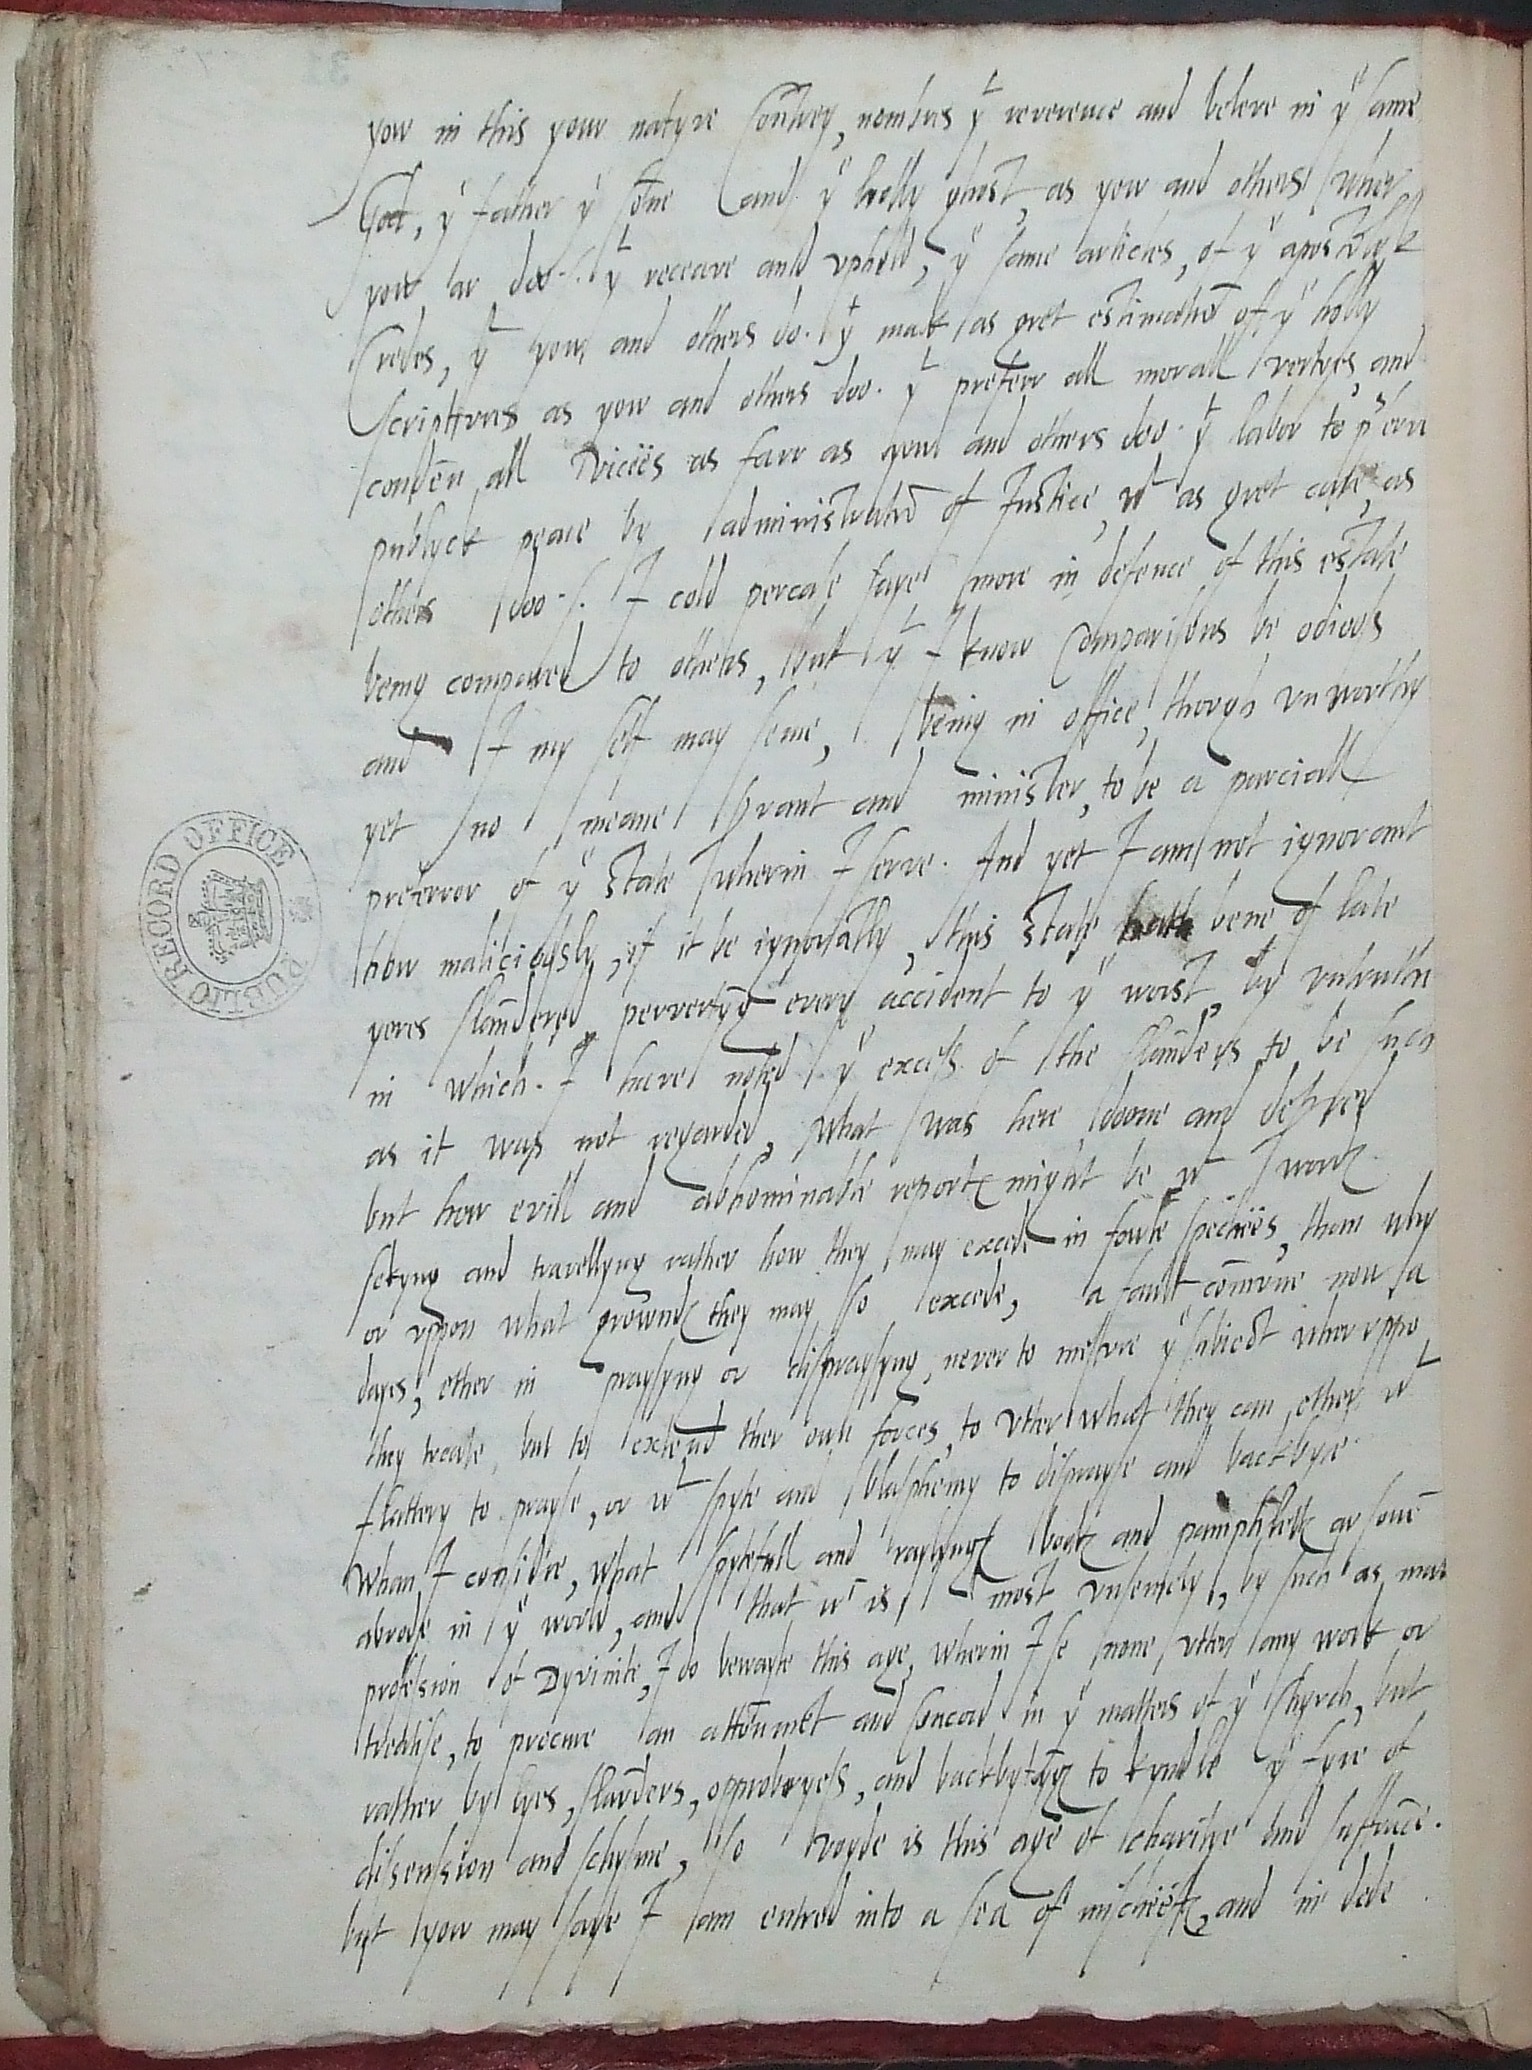 yow in this your natyve Contrey, nombres yt reverence and beleve in ye same
God, ye father ye sone and ye holly ghost, as yow and others wher
yow ar doo. yt receave and vphold, ye same articles, of ye apostolyk
Credes, yt yow and others do. yt mak as gret estimation of ye holly
scriptures as yow and others doo. yt preferr all morall vertyes, and
condem all viciees as farr as yow and others doo. yt labor to
publyck peace by administration of Justice, wt as gret care, as
others doo. I cold percase saye more in defence of this estate
being compared to others, but yt I know Comparisons be odioos
and I my self may seme, being in office, though vnworthy
yet no meane servant and minister, to be a parciall
preferror of ye state wherin I serve. And yet I am not ignorant
how maliciously, if it be ignorantly, this state hath bene of late
yeres slandered, pervertyng every accident to ye worst, by vntruthe
in which I have noted ye excess of the slanders to be such
as it was not regarded, what was here doone and deserved
but how evill and abhominable reportes might be wt wordes
sekyng and travellyng rather how they may excede in fowle speciees, than why
or vppon what growndes they may so excede, a fault comune now a
dayes, ether in praysyng or dispraysyng, never to mesure ye subiect wheruppo
they treate, but to extend ther own forces, to vtter what they can, ether wt
flattery to prayse, or wt spyte and blasphemy to disprayse and backbyte.
Whan I considre, what spytefull and raylyng bookes and pamphletes ar sowen
abrode in ye world, and that wch is most vnsemely, by such as mak
profession of Dyvinite, I do bewayle this age, wherin I se none vtter any work or
treatise, to procure an attonment and Concord in ye matters of ye Chyrch, but
rather by lyes, slanders, opprobryess, and backbytynges to kyndle ye fyre of
disension and schysme, so voyde is this age of charitye and suffrance.
but yow may saye I am entred into a sea of mischeefes, and in dede
PUBLIC RECORD OFFICE